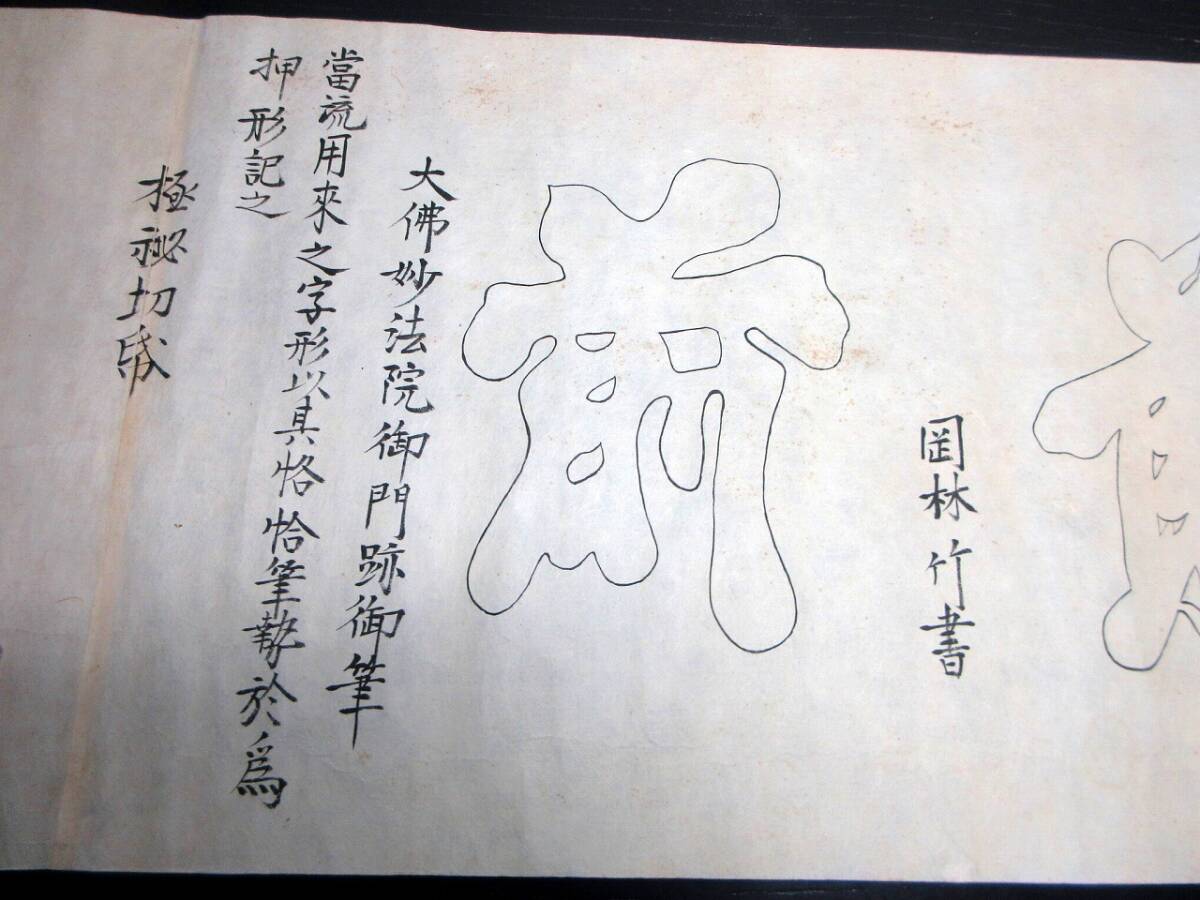 岡林竹書
前
大佛妙法院御門跡御筆
當流用來之字形以其恪恰筆勢於爲
押形記之
極祕切帋